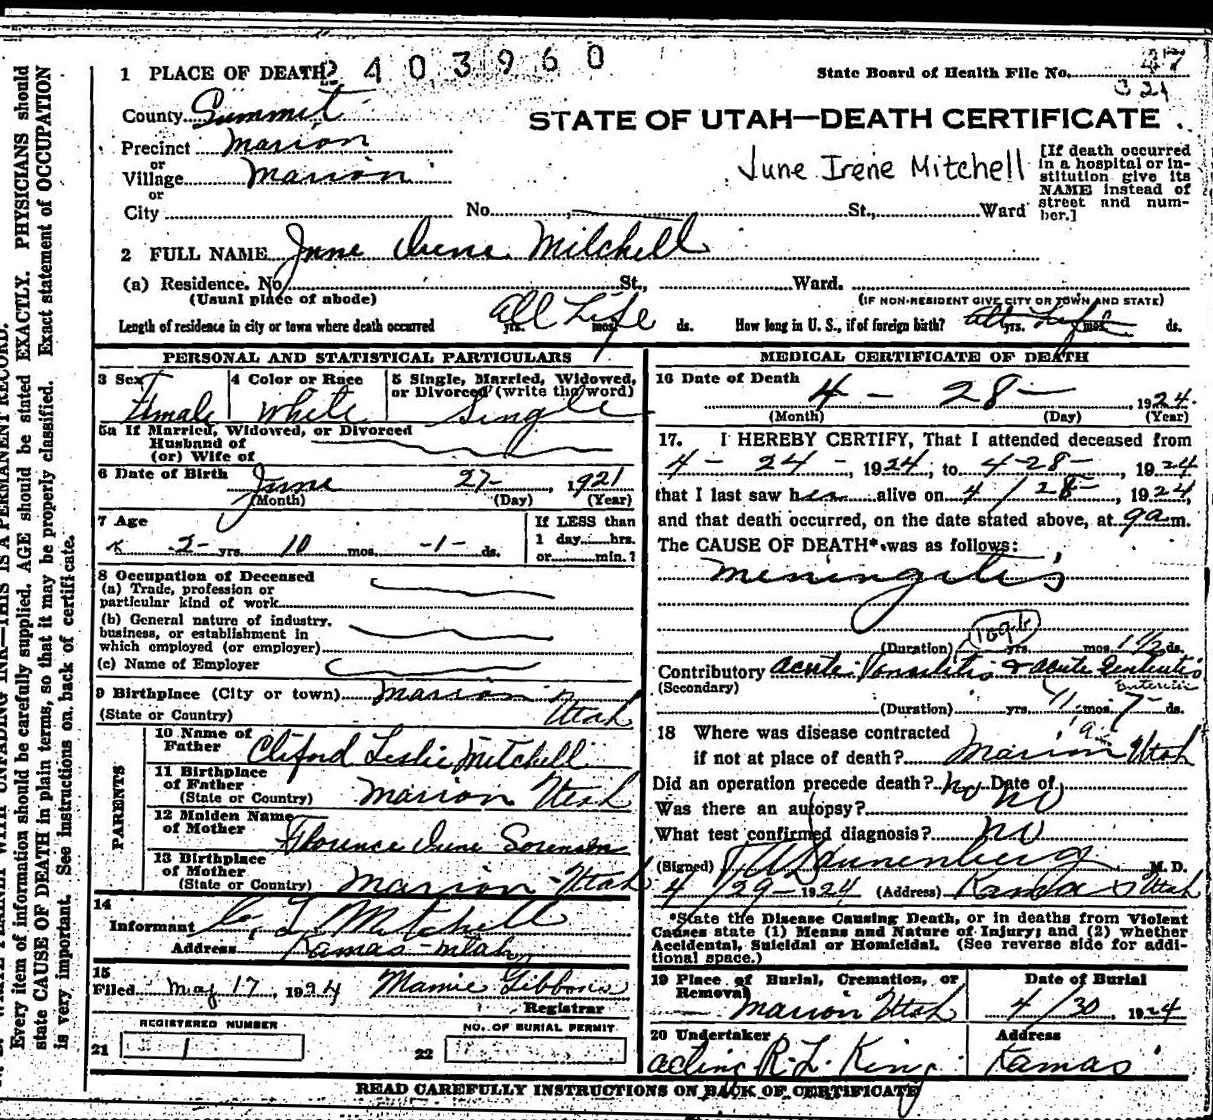 1 PLACE OF DEATH 2403960
State Board of Health File No. 47
321
County Summit
STATE OF UTAH—DEATH CERTIFICATE
Precinct Marion
or
Village Marion
or
City No. St., Ward
June Irene Mitchell
[If death occurred
in a hospital or in-
stitution give its
NAME instead of
street and num-
ber.]
2 FULL NAME June Irene Mitchell
(a) Residence. No. St., Ward.
(Usual place of abode)
(IF NON-RESIDENT GIVE CITY OR TOWN AND STATE)
Length of residence in city or town where death occurred All Life yrs. mos. ds. How long in U. S., if of foreign birth? yrs. mos. ds.
PERSONAL AND STATISTICAL PARTICULARS
3 Sex Female
4 Color or Race White
5 Single, Married, Widowed,
or Divorced (write the word)
Single
5a If Married, Widowed, or Divorced
Husband of
(or) Wife of
6 Date of Birth June 27- 1921
(Month) (Day) (Year)
7 Age
2 yrs. 10 mos. 1 ds.
If LESS than
1 day hrs.
or min.?
8 Occupation of Deceased
(a) Trade, profession or
particular kind of work
(b) General nature of industry,
business, or establishment in
which employed (or employer)
(c) Name of Employer
9 Birthplace (City or town) Marion
(State or Country) Utah
PARENTS
10 Name of
Father Cliford Leslie Mitchell
11 Birthplace
of Father
(State or Country) Marion Utah
12 Maiden Name
of Mother Florence Irene Sorensen
13 Birthplace
of Mother
(State or Country) Marion-Utah
14
Informant C. L. Mitchell
Address Kamas-Utah
15
Filed May 17, 1924 Mamie Gibbons
Registrar
REGISTERED NUMBER
21 1
NO. OF BURIAL PERMIT
22
MEDICAL CERTIFICATE OF DEATH
16 Date of Death
4 - 28 - 1924.
(Month) (Day) (Year)
17. I HEREBY CERTIFY, That I attended deceased from
4 - 24 -, 1924, to 4-28-, 1924
that I last saw her alive on 4/28-, 1924
and that death occurred, on the date stated above, at 9 a m.
The CAUSE OF DEATH* was as follows:
Meningitis
(Duration) yrs. mos. 1 1/2 ds.
Contributory acute Tonsilitis & acute
(Secondary)
(Duration) yrs. mos. 7- ds.
18 Where was disease contracted
if not at place of death? Marion Utah
Did an operation precede death? No Date of No
Was there an autopsy?
What test confirmed diagnosis? No
(Signed) Dannenberg M. D.
4/29-1924 (Address) Kamas Utah
*State the Disease Causing Death, or in deaths from Violent
Causes state (1) Means and Nature of Injury; and (2) whether
Accidental, Suicidal or Homicidal. (See reverse side for addi-
tional space.)
19 Place of Burial, Cremation, or
Removal
Marion Utah
Date of Burial
4/30, 1924
20 Undertaker
acting R. L. King
Address
Kamas
READ CAREFULLY INSTRUCTIONS ON BACK OF CERTIFICATE
Every item of information should be carefully supplied. AGE should be stated EXACTLY. PHYSICIANS should
state CAUSE OF DEATH in plain terms, so that it may be properly classified. Exact statement of OCCUPATION
is very important. See instructions on back of certificate.